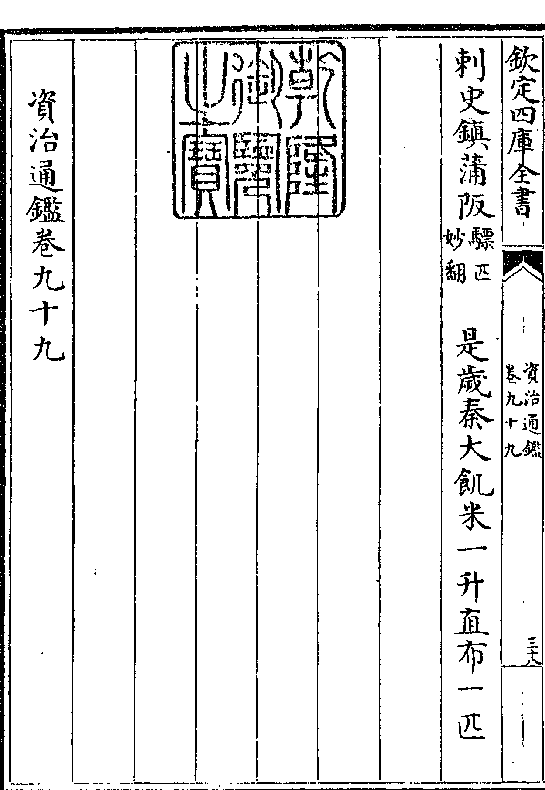 欽定四庫全書
資治通鑑
卷九十九
三十八
刺史鎮蒲阪驃匹妙翻 是歲秦大飢米一升直布一匹
乾隆御覽之寶
資治通鑑卷九十九